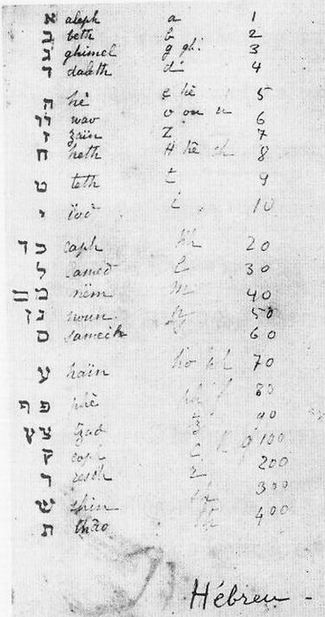 א aleph a 1
ב beth b 2
ג ghimel g gh 3
ד daleth d 4
ה hé é hè 5
ו wav v ou u 6
ז zaïn z 7
ח heth H 8
ט teth t 9
י ïod i 10
כ ך caph 20
ל lamed l 30
מ ם mem m 40
נ ן noun 50
ס samech 60
ע haïn 70
פ ף phè 80
צ ץ tzad 90
ק coph 100
ר resch 200
ש shin 300
ת thao 400
Hébreu -